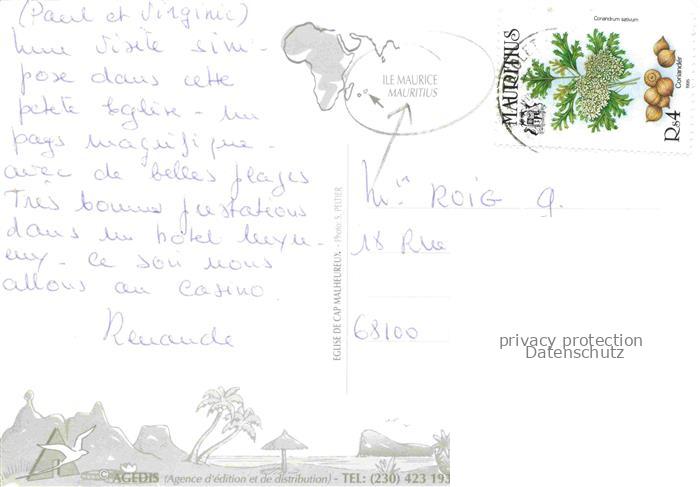 (Paul et Virginie)
Une visite s'im-
pose dans cette
petite Eglise - Un
pays magnifique -
avec de belles plages
Très bonnes prestations
dans un hôtel luxu-
eux - Ce soir nous
allons au casino
Renaude
EGLISE DE CAP MALHEUREUX - Photo S. PELTIER
ILE MAURICE
MAURITIUS
Coriandrum sativum
MAURITIUS
Coriander
1995
Rs4
ROIG G.
18 Rue
68100
privacy protection
Datenschutz
AGEDIS (Agence d'édition et de distribution) - TEL: (230) 423 19